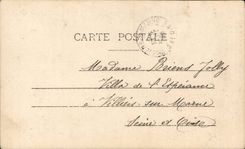 CARTE POSTALE
Madame Jolly
Villa de l'Espérance
à Villiers-sur-Marne
Seine et Oise